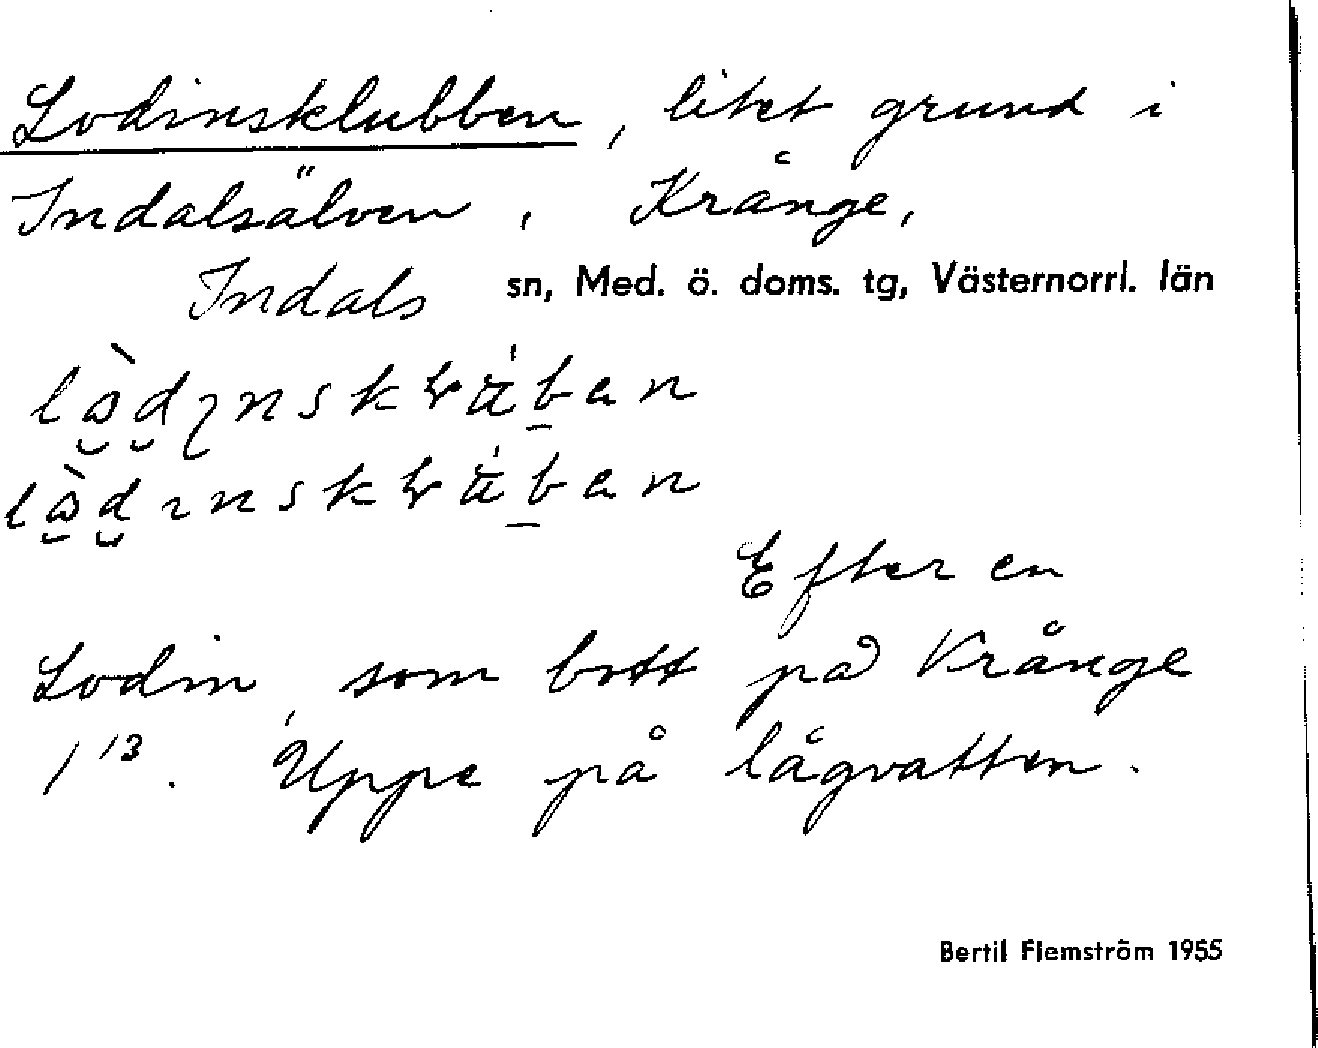 Lodinsklubben, litet grund i
Indalsälven, Krånge,
Indals sn, Med. ö. doms. tg, Västernorrl. län
Efter en
Lodin, som bott på Krånge
1¹³. Uppe på lågvatten.
Bertil Flemström 1955